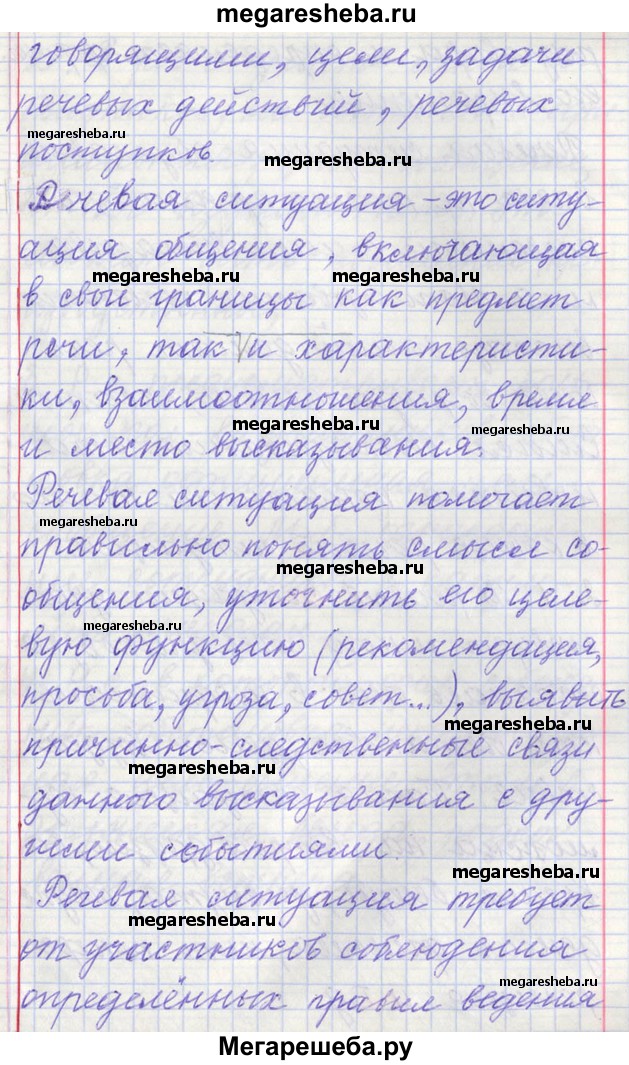 megaresheba.ru
говорящими, цели, задачи
речевых действий, речевых
megaresheba.ru
поступков.
megaresheba.ru
Речевая ситуация - это ситу-
ация общения, включающая
megaresheba.ru megaresheba.ru
в свои границы как предмет
речи, так и характеристи-
ки, взаимоотношения, время
megaresheba.ru
и место высказывания.
Речевая ситуация помогает
megaresheba.ru
правильно понять смысл со-
megaresheba.ru
общения, уточнить его целе-
megaresheba.ru
вую функцию (рекомендация,
просьба, угроза, совет...), выявить
megaresheba.ru
причинно-следственные связи
megaresheba.ru
данного высказывания с дру-
гими событиями.
megaresheba.ru
Речевая ситуация требует
megaresheba.ru
от участников соблюдения
megaresheba.ru
определённых правил ведения
Мегарешеба.ру